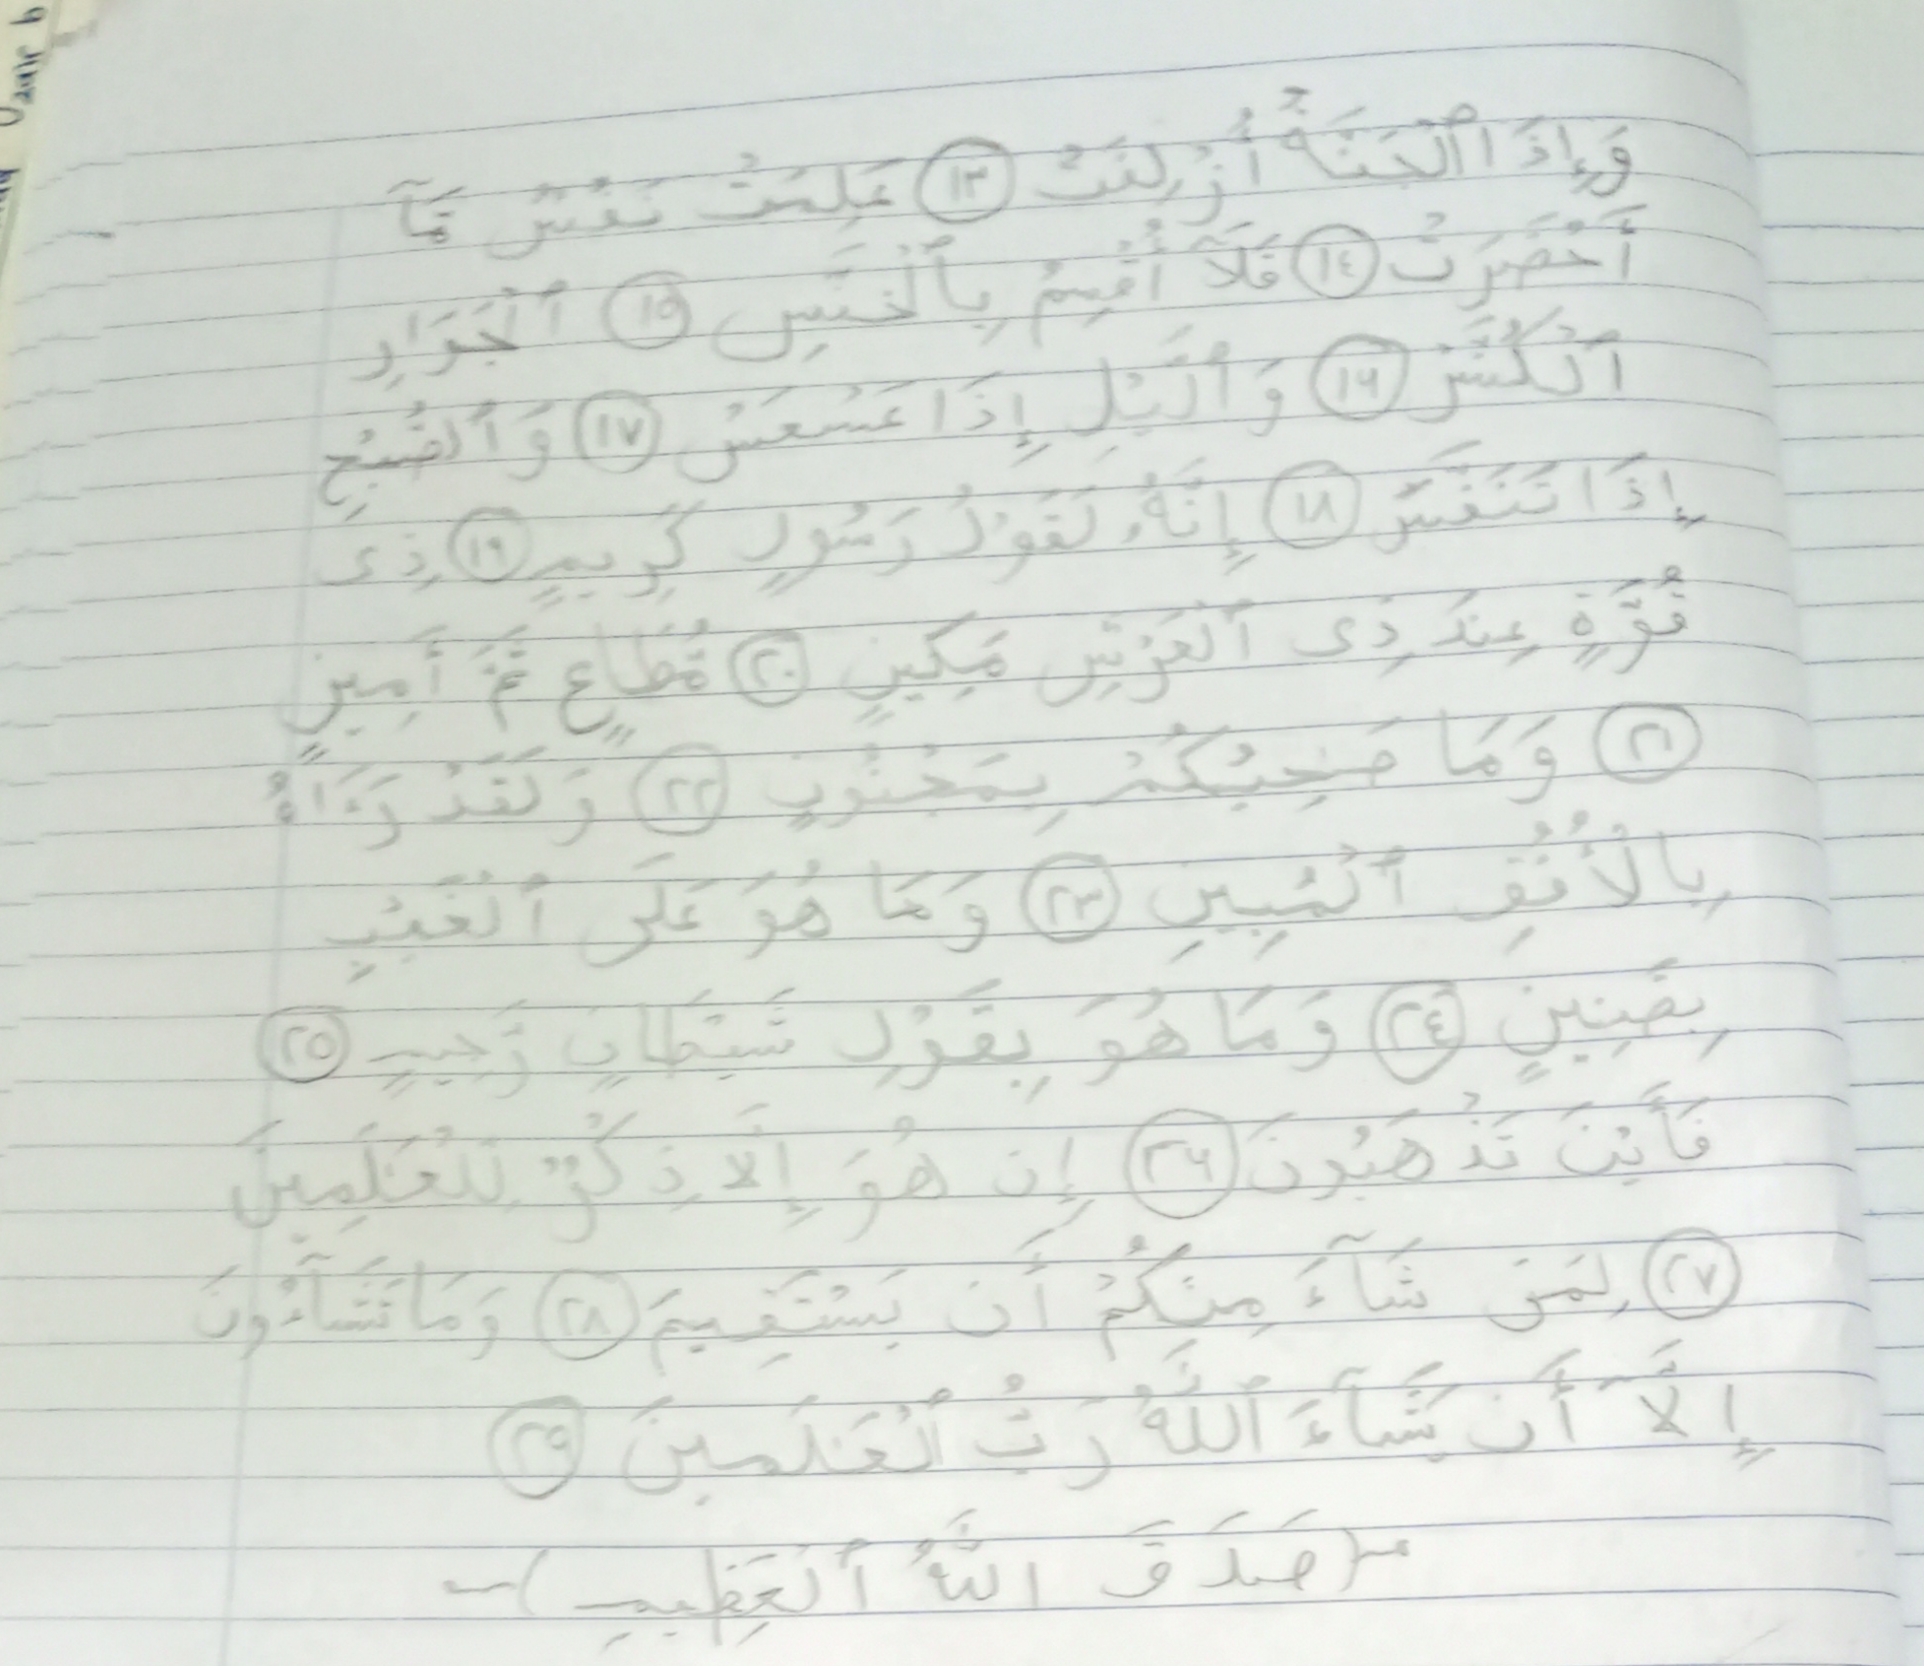 وَإِذَا ٱلْجَنَّةُ أُزْلِفَتْ ١٣ عَلِمَتْ نَفْسٌ مَّآ
أَحْضَرَتْ ١٤ فَلَآ أُقْسِمُ بِٱلْخُنَّسِ ١٥ ٱلْجَوَارِ
ٱلْكُنَّسِ ١٦ وَٱلَّيْلِ إِذَا عَسْعَسَ ١٧ وَٱلصُّبْحِ
إِذَا تَنَفَّسَ ١٨ إِنَّهُۥ لَقَوْلُ رَسُولٍ كَرِيمٍ ١٩ ذِى
قُوَّةٍ عِندَ ذِى ٱلْعَرْشِ مَكِينٍ ٢٠ مُّطَاعٍ ثَمَّ أَمِينٍ
٢١ وَمَا صَٰحِبُكُمْ بِمَجْنُونٍ ٢٢ وَلَقَدْ رَءَاهُ
بِالْأُفُقِ ٱلْمُبِينِ ٢٣ وَمَا هُوَ عَلَى ٱلْغَيْبِ
بِضَنِينٍ ٢٤ وَمَا هُوَ بِقَوْلِ شَيْطَانٍ رَّجِيمٍ ٢٥
فَأَيْنَ تَذْهَبُونَ ٢٦ إِن هُوَ إِلَّا ذِكْرٌ لِّلْعَٰلَمِينَ
٢٧ لِمَن شَآءَ مِنكُمْ أَن يَسْتَقِيمَ ٢٨ وَمَا تَشَآءُونَ
إِلَّآ أَن يَشَآءَ ٱللَّهُ رَبُّ ٱلْعَٰلَمِينَ ٢٩
(صَدَقَ اللَّهُ ٱلْعَظِيمِ)
Uzair b